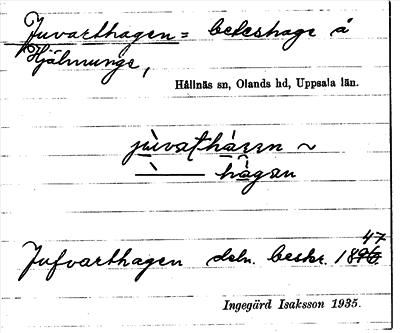 Juvarthagen = beteshage å
Hjälmunge,
Hållnäs sn, Olands hd, Uppsala län.
jùvatháɡɛn ~
hàgan
47
Jufvarthagen deln. beskr. 1896.
Ingegärd Isaksson 1935.